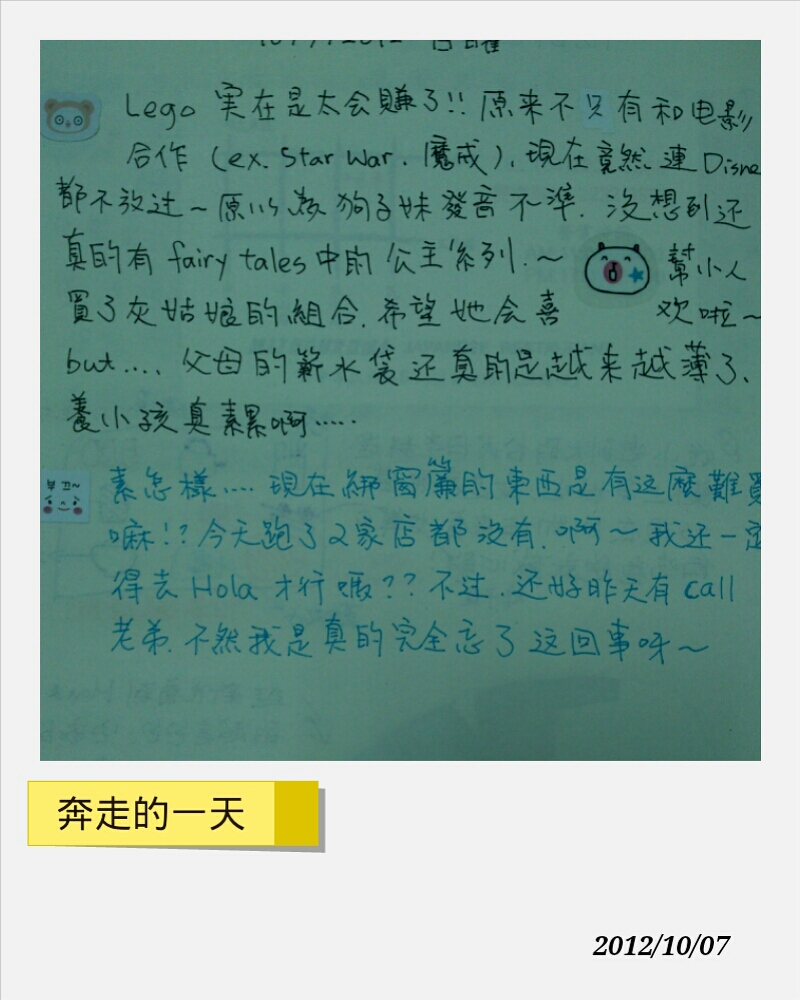 Lego 実在是太会賺了!! 原来不只有和电影
合作 (ex. Star War. 魔戒), 現在竟然連 Disne
都不放过~原以為狗子妹發音不準. 沒想到还
真的有 fairy tales 中的公主系列.~ 幫小人
買了灰姑娘的組合. 希望她会喜 欢啦~
but.... 父母的薪水袋还真的是越来越薄了.
養小孩真累啊.....
素怎樣.... 現在綁窗簾的東西是有这麼難買
嘛!? 今天跑了2家店都沒有. 啊~我还一定
得去 Hola 才行嗎?? 不过. 还好昨天有 call
老弟. 不然我是真的完全忘了这回事呀~
奔走的一天
2012/10/07